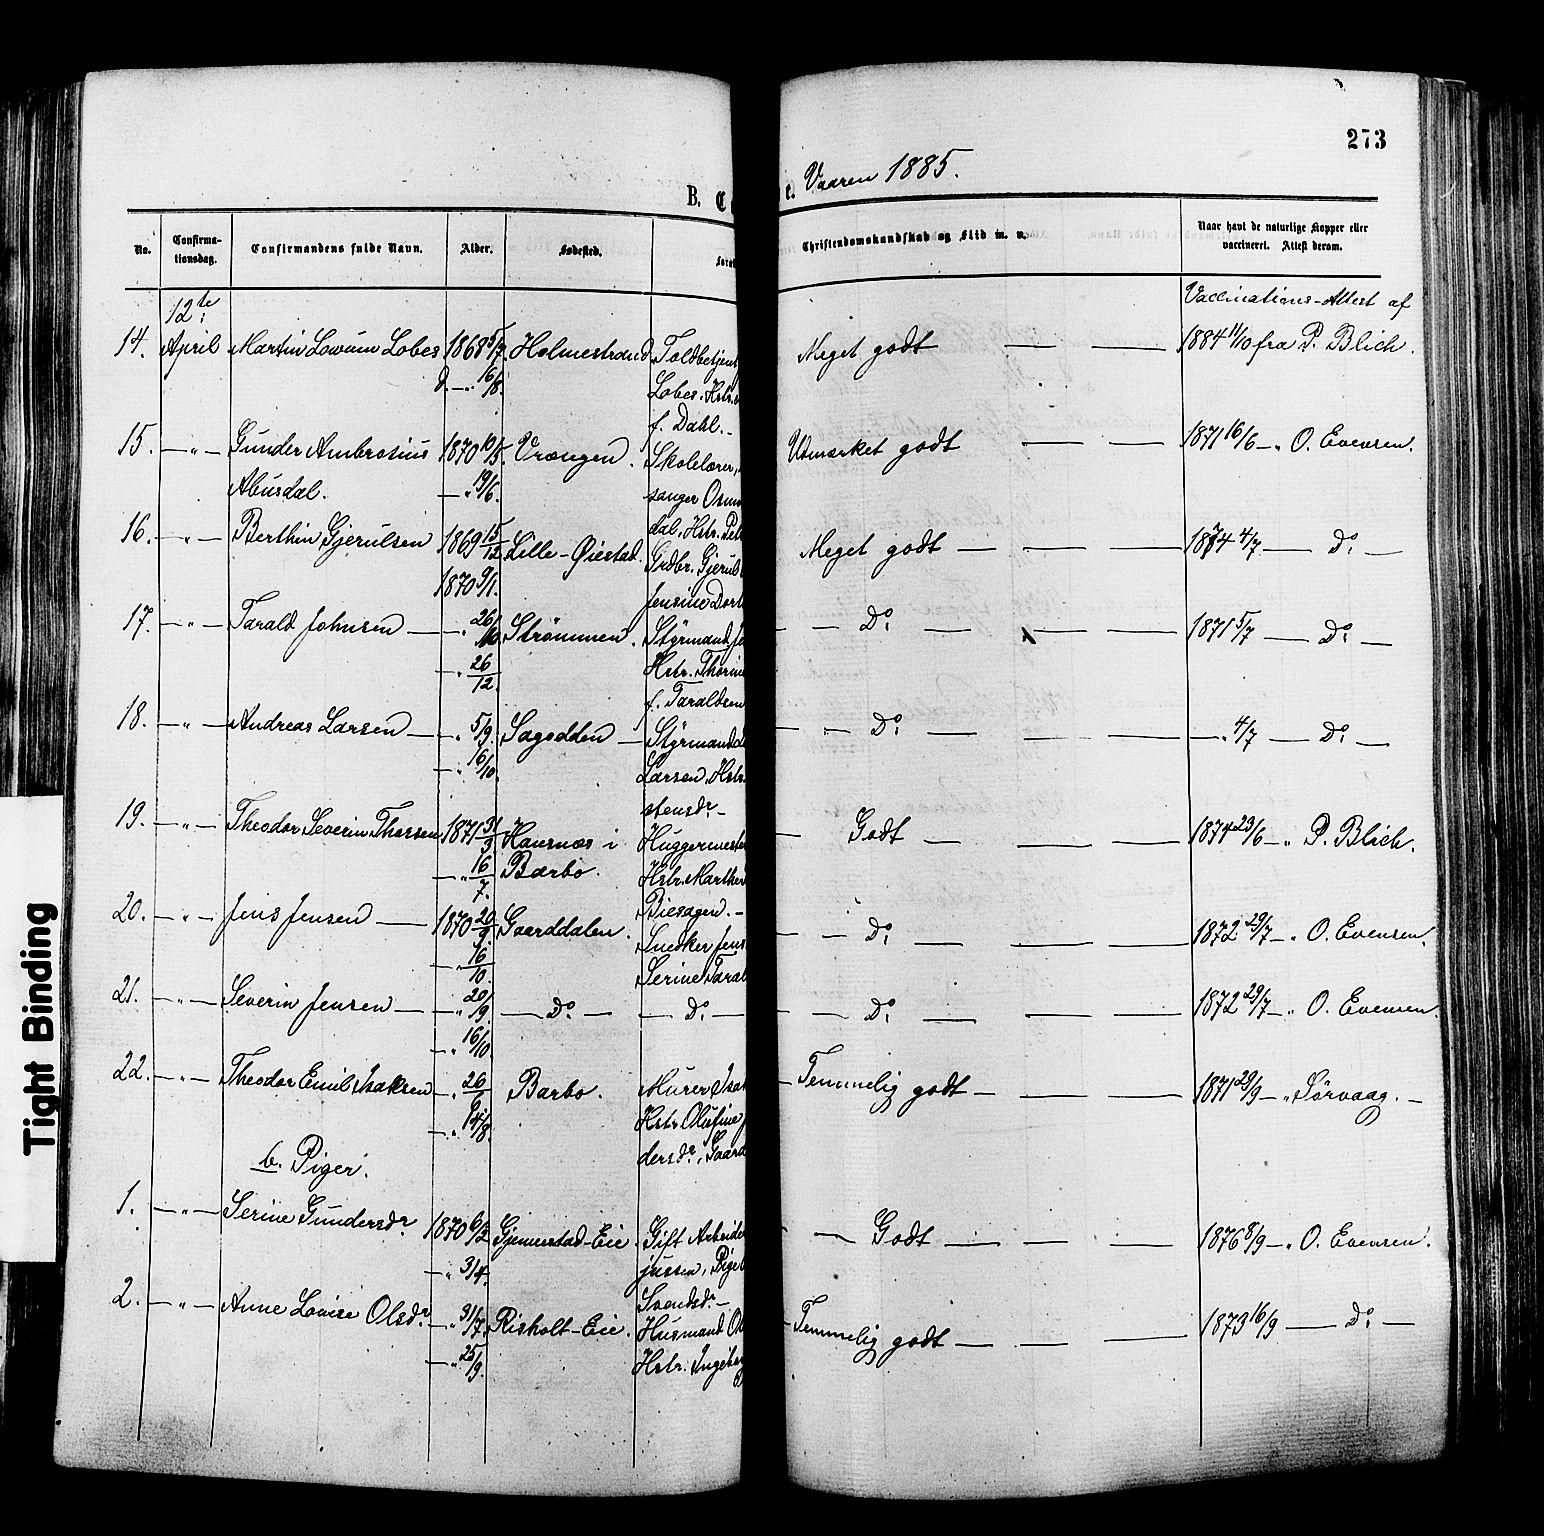 273
B. C t. Vaaren 1885.
No. Confirma-tionsdag. Confirmandens fulde Navn. Alder. Fødested. Foræl Christendomskundskab og Flid m. v. Naar havt de naturlige Kopper eller vaccineret. Attest derom.
12te Vaccinations-Attest af
14. April Martin Lobes 1868 5/7 Holmestrand Toldbetjent Meget godt — — 1884 11/10 fra P. Blich.
d. — „ 16/8. Lobes. Hstr.
f. Dahl. –
15. — „ — Gunder Ambrosius 1870 19/5. Vrængen. Skolelærer, Udmærket godt — — 1871 16/6 – „ O. Evensen.
Abusdal. — „ 19/6. sanger Osmu
dal. Hstr. Pet
16. — „ — Berthin Gjerulsen 1869 15/12 Lille-Øiestad. Grdbr. Gjerul Meget godt — — — 1874 4/7 — Do. —
1870 9/1. Jensine Dort
17. — „ — Tarald Johnsen — „ 26/10 Strømmen. Styrmand Jo — Do. — — — 1871 5/7 — Do. —
— „ 26/12. Hstr. Thorine
f. Taraldsen
18. — „ — Andreas Larsen — „ 5/9. Sagodden — Styrmand — Do. — — — — „ 4/7 — Do. —
— „ 16/10. Larsen, Hstr.
stensdr. –
19. — „ — Theodor Severin Thorsen 1871 31/3 Havsnæs i Huggermeste — Godt — — — 1874 23/6 – „ P. Blich.
— „ 16/7. Barbo. Hstr. Marthe
Biesagen. –
20. — „ — Jens Jensen — 1870 20/9 Gaarddalen. Snedker Jens — Do. — — — 1872 29/7 – „ O. Evensen.
— „ 16/10. Serine Taral
21. — „ — Severin Jensen — — „ 20/9 — Do. — — Do. — — Do. — — — 1872 29/7 – „ O. Evensen.
— „ 16/10.
22. — „ — Theodor Emil Isaksen — „ 26/6 Barbo. Murer Isak — Temmelig godt — — — 1871 29/9 – „ Sørvaag. –
— „ 14/8. Hstr. Olufine
dersdr., Gaard
b. Piger.
1. — „ — Serine Gundersdr. 1870 6/2 Gjennestad-Eie. Gift Arbeide — Godt — — — 1876 8/9 – „ O. Evensen.
— „ 3/4. jussen, Pige
Svendsdr. –
2. — „ — Anne Lovise Olsdr. — „ 31/7. Risholt-Eie. Husmand Ol — Temmelig godt — — — 1873 16/9 — Do. —
— „ 25/9. Hstr. Ingeborg
Tight Binding